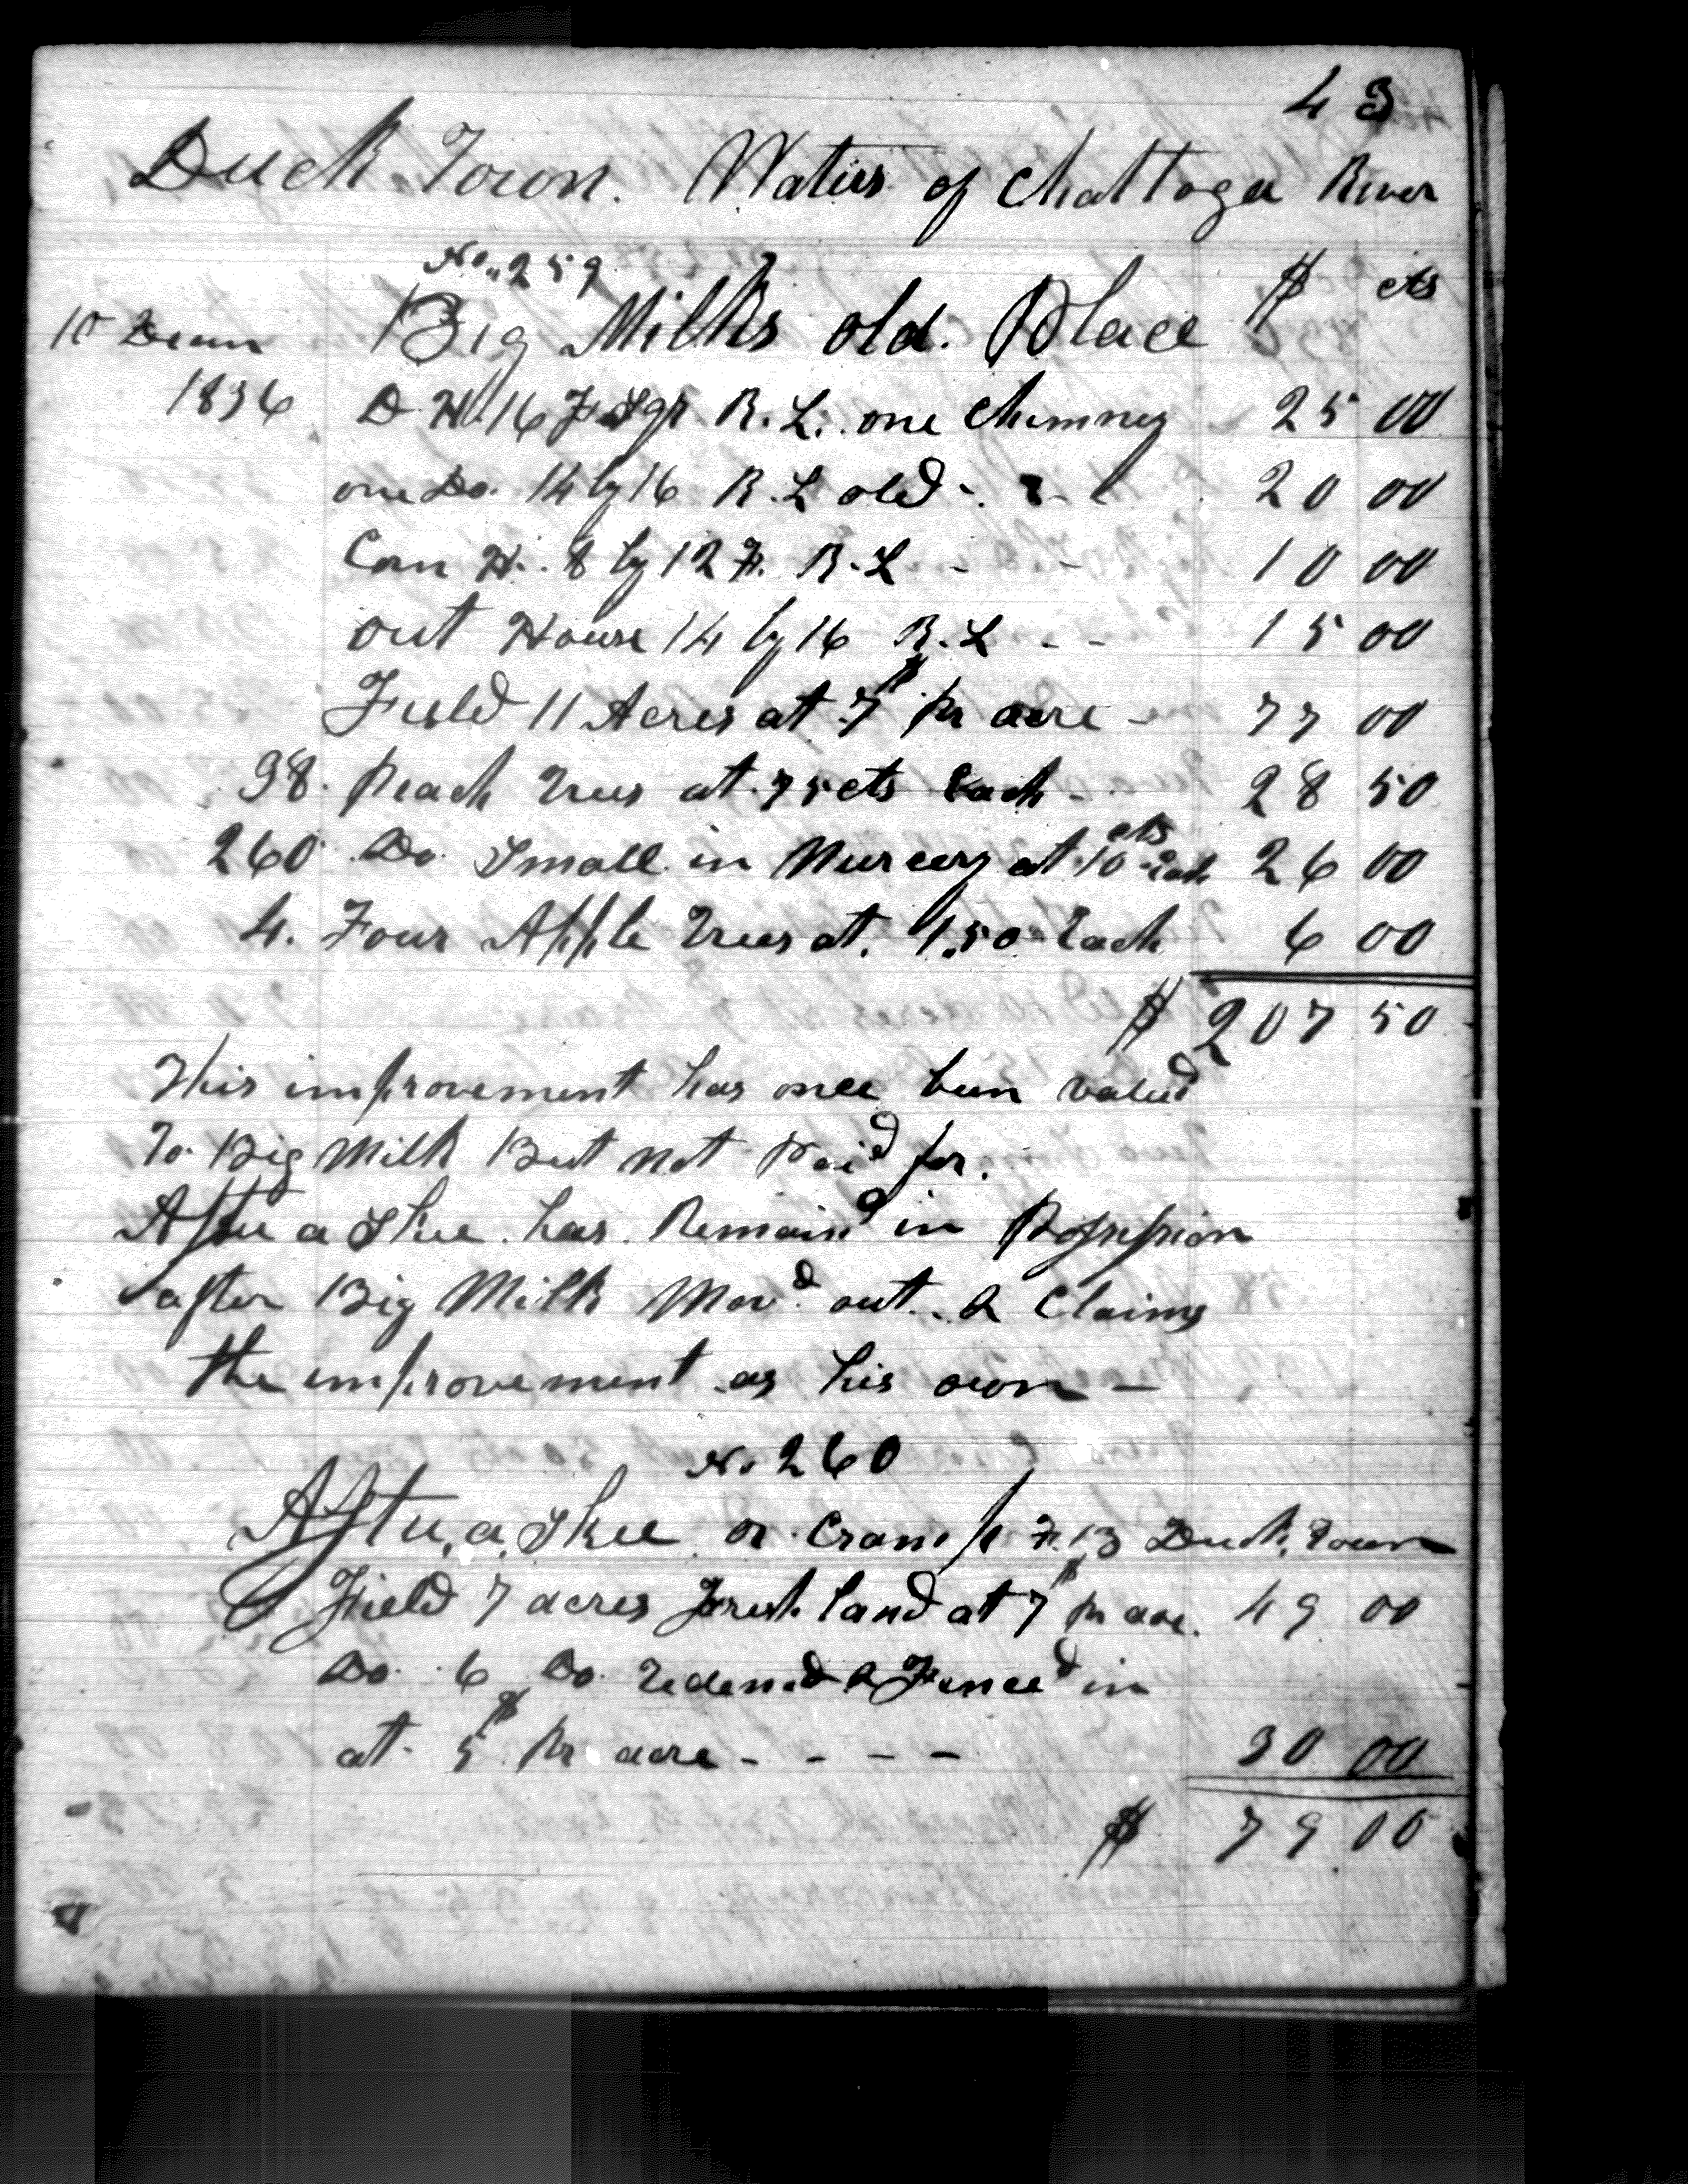 43
Duck Town. Waters of Chattoga River
No. 259 $ cts
10 Decm Big Milks old. Place
1836 D H 16 F. Sqr. R. L. one Chimney 25 00
one Do. 14 by 16 R. L old - - 20 00
Corn H. 8 by 12 F. R. L - - 10 00
out House 14 by 16 R. L - - 15 00
Field 11 Acres at 7$ pr acre - 77 00
38. peach Trees at 75 cts Each - 28 50
260 Do Small in Nurcery at 10 cts Each 26 00
4. Four Apple Trees at. 1.50 Each 6 00
$ 207 50
This improvement has once been valued
To Big Milk But not Paid for.
Astu a Skee has Remaind in Possession
after Big Milk Movd out. & Claims
the improvement as his own -
No. 260
Astu, a, Skee or F. 13 Duck Town
Field 7 acres Fresh land at 7$ pr acre. 49 00
Do. 6 Do. & Fenced in
at 5$ pr acre - - - - 30 00
$ 79 00